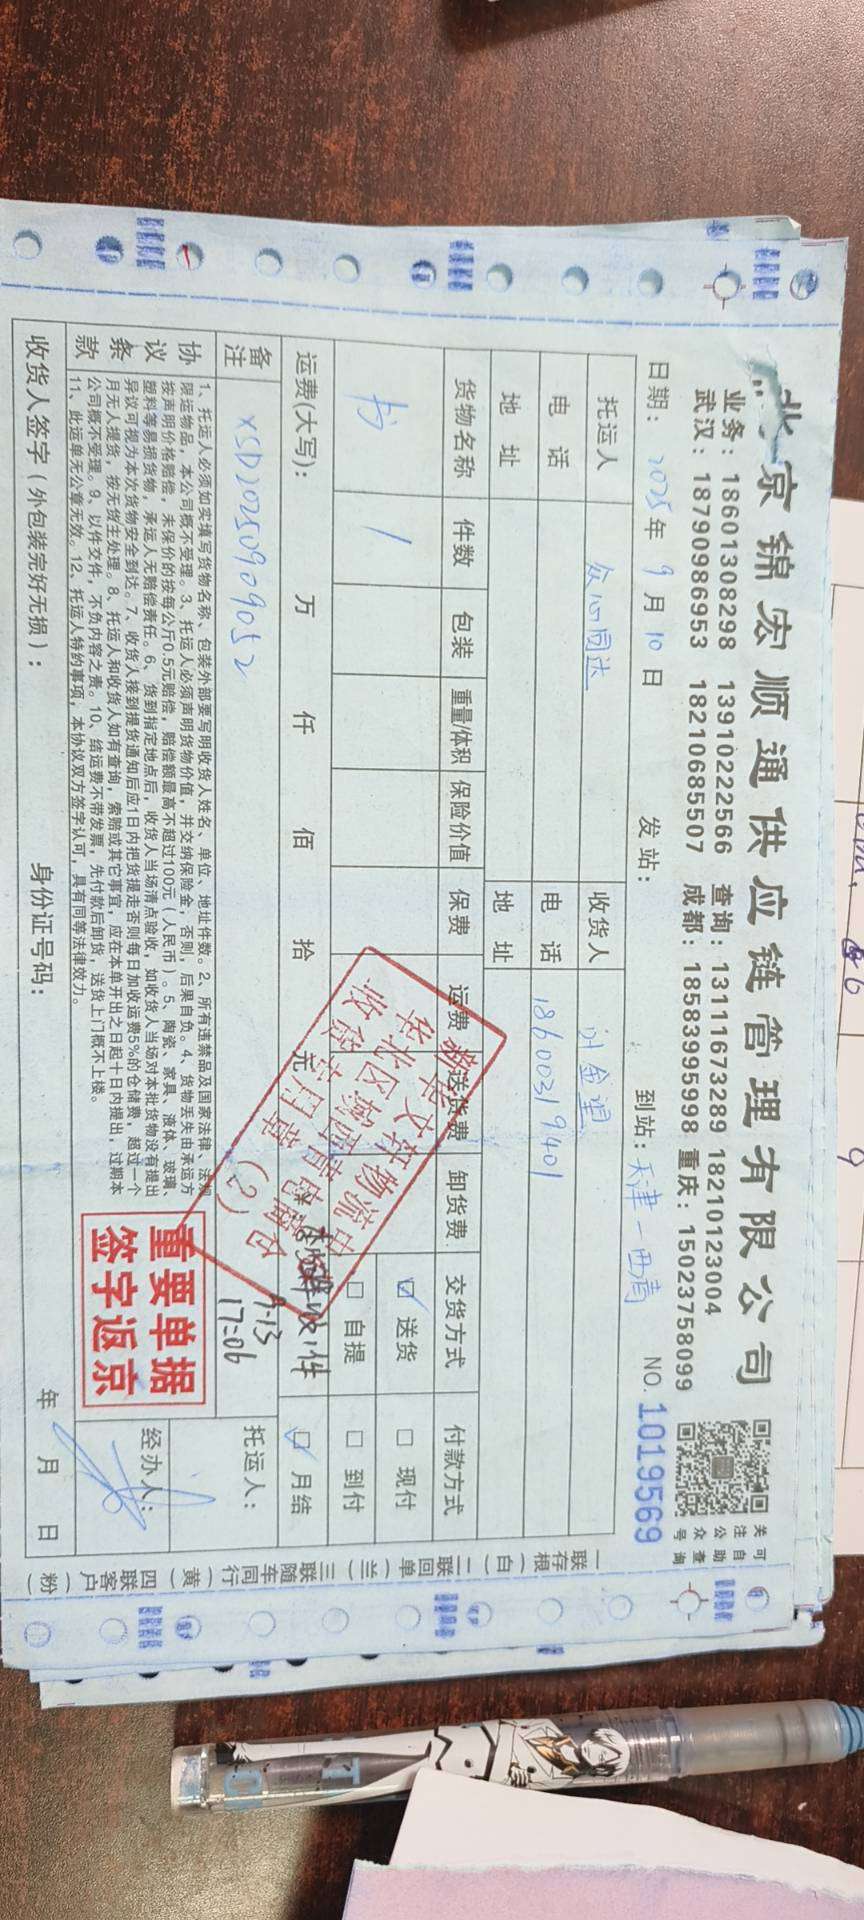 北京锦宏顺通供应链管理有限公司
业务：18601308298 13910222566 查询：13111673289 18210123004
武汉：18790986953 18210685507 成都：18583995998 重庆：15023758099
关注公众号
可自助查询
日期：2025年9月10日 发站： 到站：天津-西青 NO. 1019569
托运人 众心同达 收货人
电话 电话 18600319401
地址 地址
货物名称 件数 包装 重量/体积 保险价值 保费 运费 送货费 卸货费 交货方式 付款方式
书 1 ☑送货 □现付
□自提 □到付
运费(大写)： 万 仟 佰 拾 元 ☑月结
新华文轩物流中
华北区域西青仓
收货专用章
(2)
收1件
9.13
17:06
备注 XSD20250909052
托运人：
协议条款
1、托运人必须如实填写货物名称、包装外部要写明收货人姓名、单位、地址件数。2、所有违禁品及国家法律、法规
限运物品，本公司概不受理。3、托运人必须声明货物价值，并交纳保险金，否则，后果自负。4、货物丢失由承运方
按声明价格赔偿，未保价的按每公斤0.5元赔偿，赔偿额最高不超过100元（人民币）。5、陶瓷、家具、液体、玻璃、
塑料等易损货物，承运人无赔偿责任。6、货到指定地点后，收货人当场清点验收，如收货人当场对本批货物没有提出
异议可视为本次货物安全到达。7、收货人接到提货通知后应1日内把货提走否则每日加收运费5%的仓储费，超过一个
月无人提货，按无货主处理。8、托运人和收货人如有查询，索赔或其它事宜，应在本单开出之日起十日内提出，过期本
公司概不受理。9、以件交件，不负内容之责。10、结运费不带发票，先付款后卸货，送货上门概不上楼。
11、此运单无公章无效。12、托运人特约事项，本协议双方签字认可，具有同等法律效力。
重要单据
签字返京
经办人：
收货人签字（外包装完好无损）： 身份证号码： 年 月 日
一联存根（白）二联回单（兰）三联随车同行（黄）四联客户（粉）